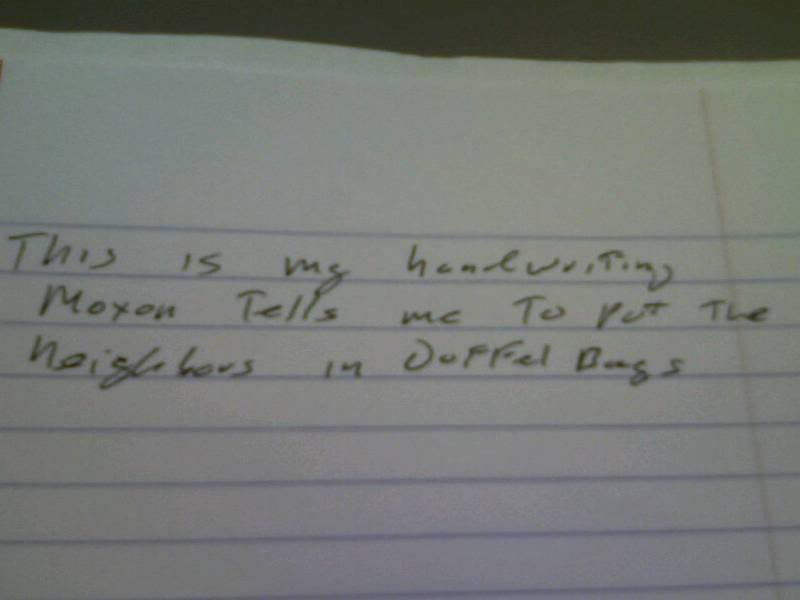 This is my handwriting
Moxon Tells me To put The
Neighbors in Duffel Bags